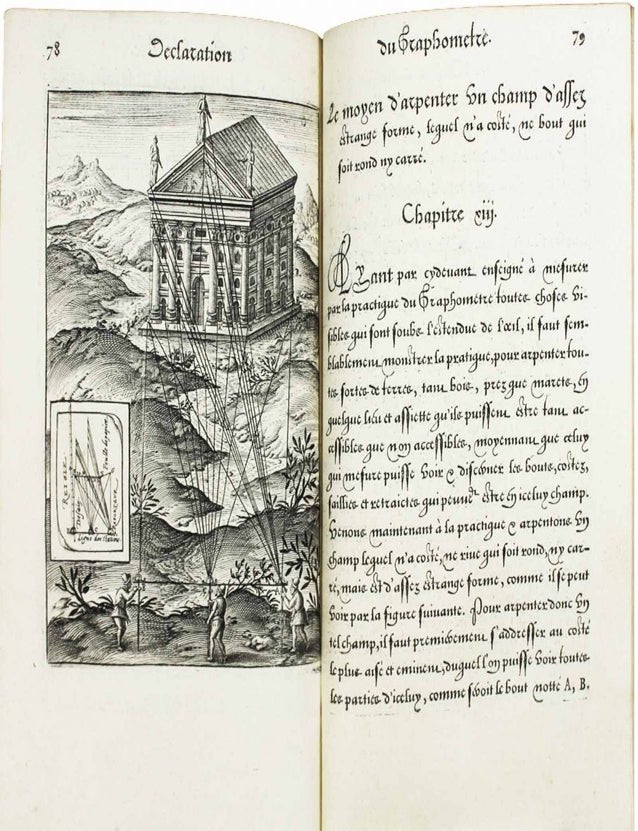 78
Declaration
du Graphometre.
79
Le moyen d'arpenter vn champ d'assez
estrange forme, lequel n'a costé, ne bout qui
soit rond ny carré.
Chapitre xiij.
AYant par cydeuant enseigné à mesurer
par la practique du Graphometre toutes choses vi-
sibles qui sont soubs l'estendue de l'œil, il faut sem-
blablement monstrer la pratique, pour arpenter tou-
tes sortes de terres, tant bois, prez que marets, en
quelque lieu et assiette qu'ils puissent estre tant ac-
cessibles que non accessibles, moyennant que celuy
qui mesure puisse voir & discerner les bouts, costez,
saillies et retraictes qui peuuent estre en iceluy champ.
Venons maintenant à la practique & arpentons vn
champ lequel n'a costé, ne riue qui soit rond, ny car-
ré, mais est d'assez estrange forme, comme il se peut
voir par la figure suiuante. Pour arpenter donc vn
tel champ, il faut premierement s'addresser au costé
le plus aisé et eminent, duquel l'on puisse voir toutes
les parties d'iceluy, comme seroit le bout notté A, B.